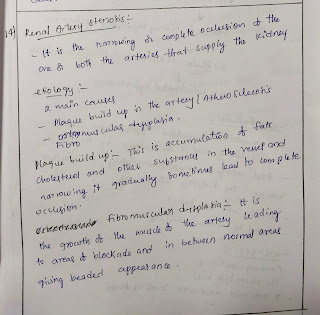 14) Renal Artery stenosis :-
- It is the narrowing or complete occlusion of the
one or both the arteries that supply the kidney
etiology :-
2 main causes
- Plaque build up in the artery / Atherosclerosis
- Fibromuscular dysplasia.
Plaque build up :- This is accumulation of fats
cholesterol and other substances in the vessel and
narrowing it gradually. Sometimes lead to complete
occlusion.
Fibromuscular dysplasia :- It is
the growth of the muscle of the artery leading
to areas of blockade and in between normal areas
giving beaded appearance.